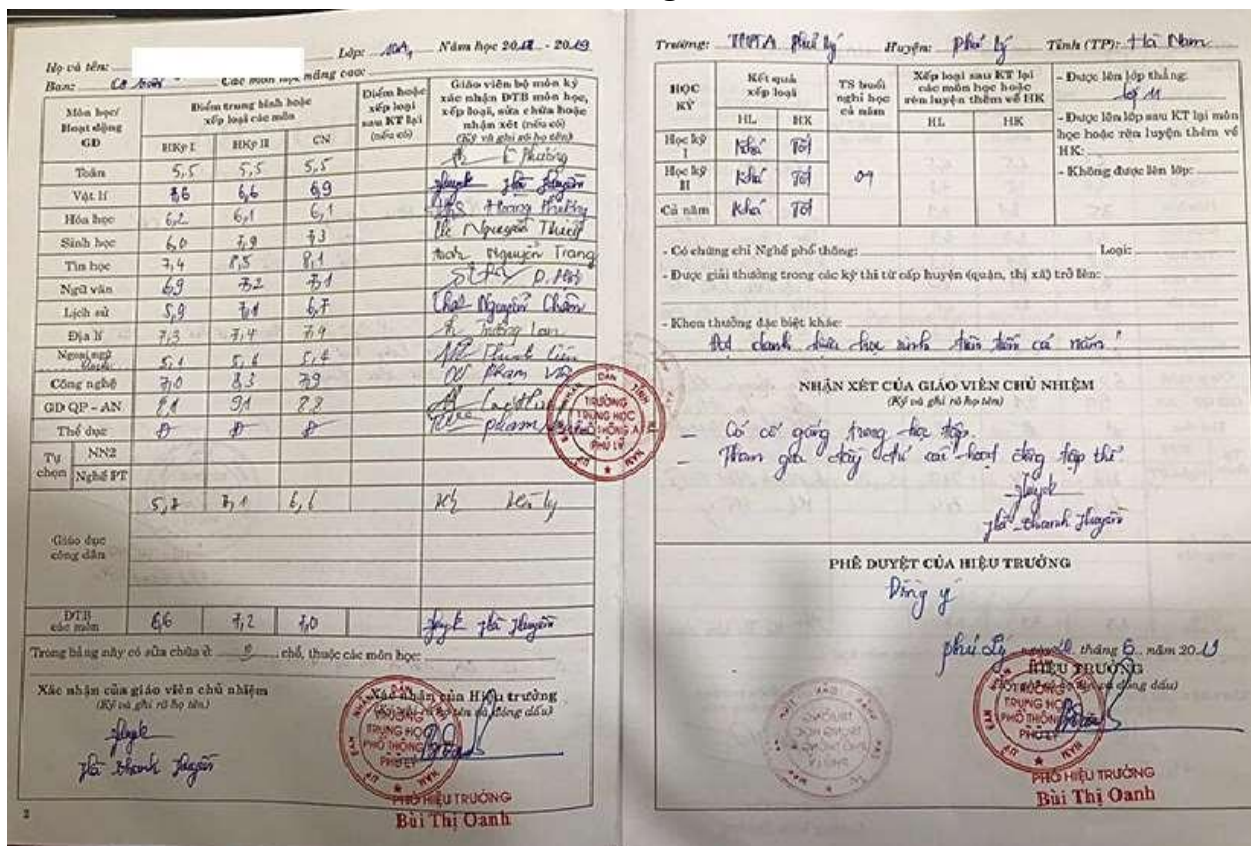 Họ và tên: Lớp: 10A1 Năm học 2018 - 2019
Ban: Cơ bản Các môn học nâng cao:
Môn học/ Hoạt động GD
Điểm trung bình hoặc xếp loại các môn
HKỳ I HKỳ II CN
Điểm hoặc xếp loại sau KT lại (nếu có)
Giáo viên bộ môn ký xác nhận ĐTB môn học, xếp loại, sửa chữa hoặc nhận xét (nếu có)
(Ký và ghi rõ họ tên)
Toán 5,5 5,5 5,5 Phương
Vật lí 6,6 6,9 Hà Huyền
Hóa học 6,2 6,1 6,1 Hương
Sinh học 6,0 7,9 7,3 Nguyễn Thuỷ
Tin học 7,4 8,5 8,1 Nguyễn Trang
Ngữ văn 6,9 7,2 7,1
Lịch sử 5,9 7,1 6,7 Nguyễn Châm
Địa lí 7,3 7,4 7,4 Lan
Ngoại ngữ 5,1 5,4 Liên
Công nghệ 7,0 8,3 7,9 Phạm
GD QP - AN 9,1 8,8
Thể dục Đ Đ Đ Phạm
Tự chọn NN2
Nghề PT
Giáo dục công dân 5,7 7,1 6,6
ĐTB các môn 6,6 7,2 7,0 Hà Huyền
Trong bảng này có sửa chữa ở: 0 chỗ, thuộc các môn học:
Xác nhận của giáo viên chủ nhiệm
(Ký và ghi rõ họ tên)
Hà Thanh Huyền
Xác nhận của Hiệu trưởng
(Ký, ghi rõ họ tên và đóng dấu)
TRƯỜNG TRUNG HỌC PHỔ THÔNG A PHỦ LÝ
PHÓ HIỆU TRƯỞNG
Bùi Thị Oanh
2
Trường: THPT A Phủ Lý Huyện: Phủ Lý Tỉnh (TP): Hà Nam
HỌC KỲ
Kết quả xếp loại
HL HK
TS buổi nghỉ học cả năm
Xếp loại sau KT lại các môn học hoặc rèn luyện thêm về HK
HL HK
- Được lên lớp thẳng:
lớp 11
- Được lên lớp sau KT lại môn học hoặc rèn luyện thêm về HK:
- Không được lên lớp:
Học kỳ I Khá Tốt
Học kỳ II Khá Tốt 01
Cả năm Khá Tốt
- Có chứng chỉ Nghề phổ thông: Loại:
- Được giải thưởng trong các kỳ thi từ cấp huyện (quận, thị xã) trở lên:
- Khen thưởng đặc biệt khác:
Đạt danh hiệu học sinh tiên tiến cả năm!
NHẬN XÉT CỦA GIÁO VIÊN CHỦ NHIỆM
(Ký và ghi rõ họ tên)
- Có cố gắng trong học tập.
- Tham gia đầy đủ các hoạt động tập thể
Hà Thanh Huyền
PHÊ DUYỆT CỦA HIỆU TRƯỞNG
Đồng ý
Phủ Lý, ngày 20 tháng 6 năm 2019
HIỆU TRƯỞNG
(Ký, ghi rõ họ tên và đóng dấu)
TRƯỜNG TRUNG HỌC PHỔ THÔNG A PHỦ LÝ
PHÓ HIỆU TRƯỞNG
Bùi Thị Oanh